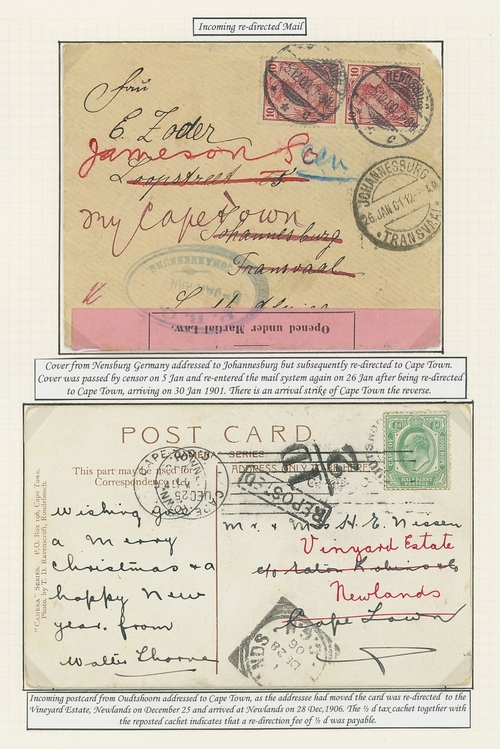 Incoming re-directed Mail
10
10
Frau
E. Zoder
Jameson
Loopstreet 55
my Cape Town
Johannesburg
Transvaal
JOHANNESBURG
26. JAN. 01
TRANSVAAL
Opened under Martial Law.
Cover from Nensburg Germany addressed to Johannesburg but subsequently re-directed to Cape Town.
Cover was passed by censor on 5 Jan and re-entered the mail system again on 26 Jan after being re-directed
to Cape Town, arriving on 30 Jan 1901. There is an arrival strike of Cape Town the reverse.
POST CARD
"CAMERA" SERIES.
This part may be used for
Correspondence.
ADDRESS ONLY HERE
REPOSTED
HALFPENNY
"CAMERA" SERIES. P.O. Box 196, Cape Town.
Photo. by T. D. Ravenscroft, Rondebosch.
Wishing you
a merry
Christmas & a
happy New
year. from
Walter Thorne
Mr. & Mrs H. E. Nissen
Vinyard Estate
Newlands
Cape Town
Incoming postcard from Oudtshoorn addressed to Cape Town, as the addressee had moved the card was re-directed to the
Vineyard Estate, Newlands on December 25 and arrived at Newlands on 28 Dec,1906. The ½ d tax cachet together with
the reposted cachet indicates that a re-direction fee of ½ d was payable.